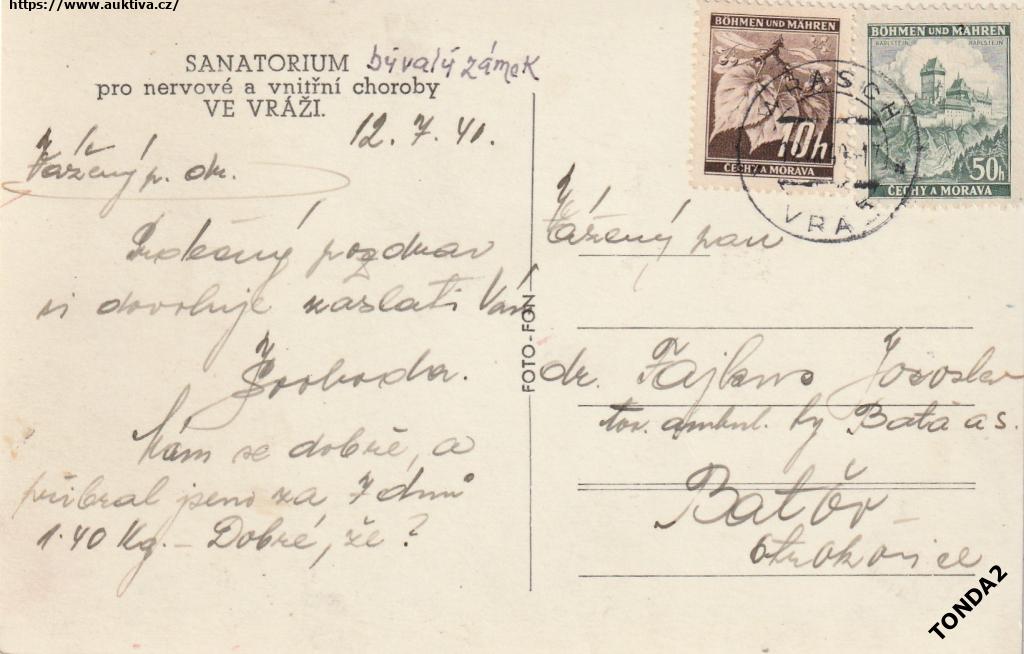 https://www.auktiva.cz/
SANATORIUM bývalý zámek
pro nervové a vnitřní choroby
VE VRÁŽI.
12. 7. 41.
Vážený p. dr.
Srdečný pozdrav
si dovoluje zaslati Vám
Svoboda.
Mám se dobře, a
přibral jsem za 7 dnů
1.40 Kg. – Dobré, že?
FOTO-FON
BÖHMEN UND MÄHREN
10h
ČECHY A MORAVA
BÖHMEN UND MÄHREN
KARLSTEIN KARLŠTEJN
50h
ČECHY A MORAVA
WRASCH
VRÁŽ
Vážený pan
dr. Jaroslav
tov. ambul. fy Baťa a s.
Baťov –
Otrokovice
TONDA2